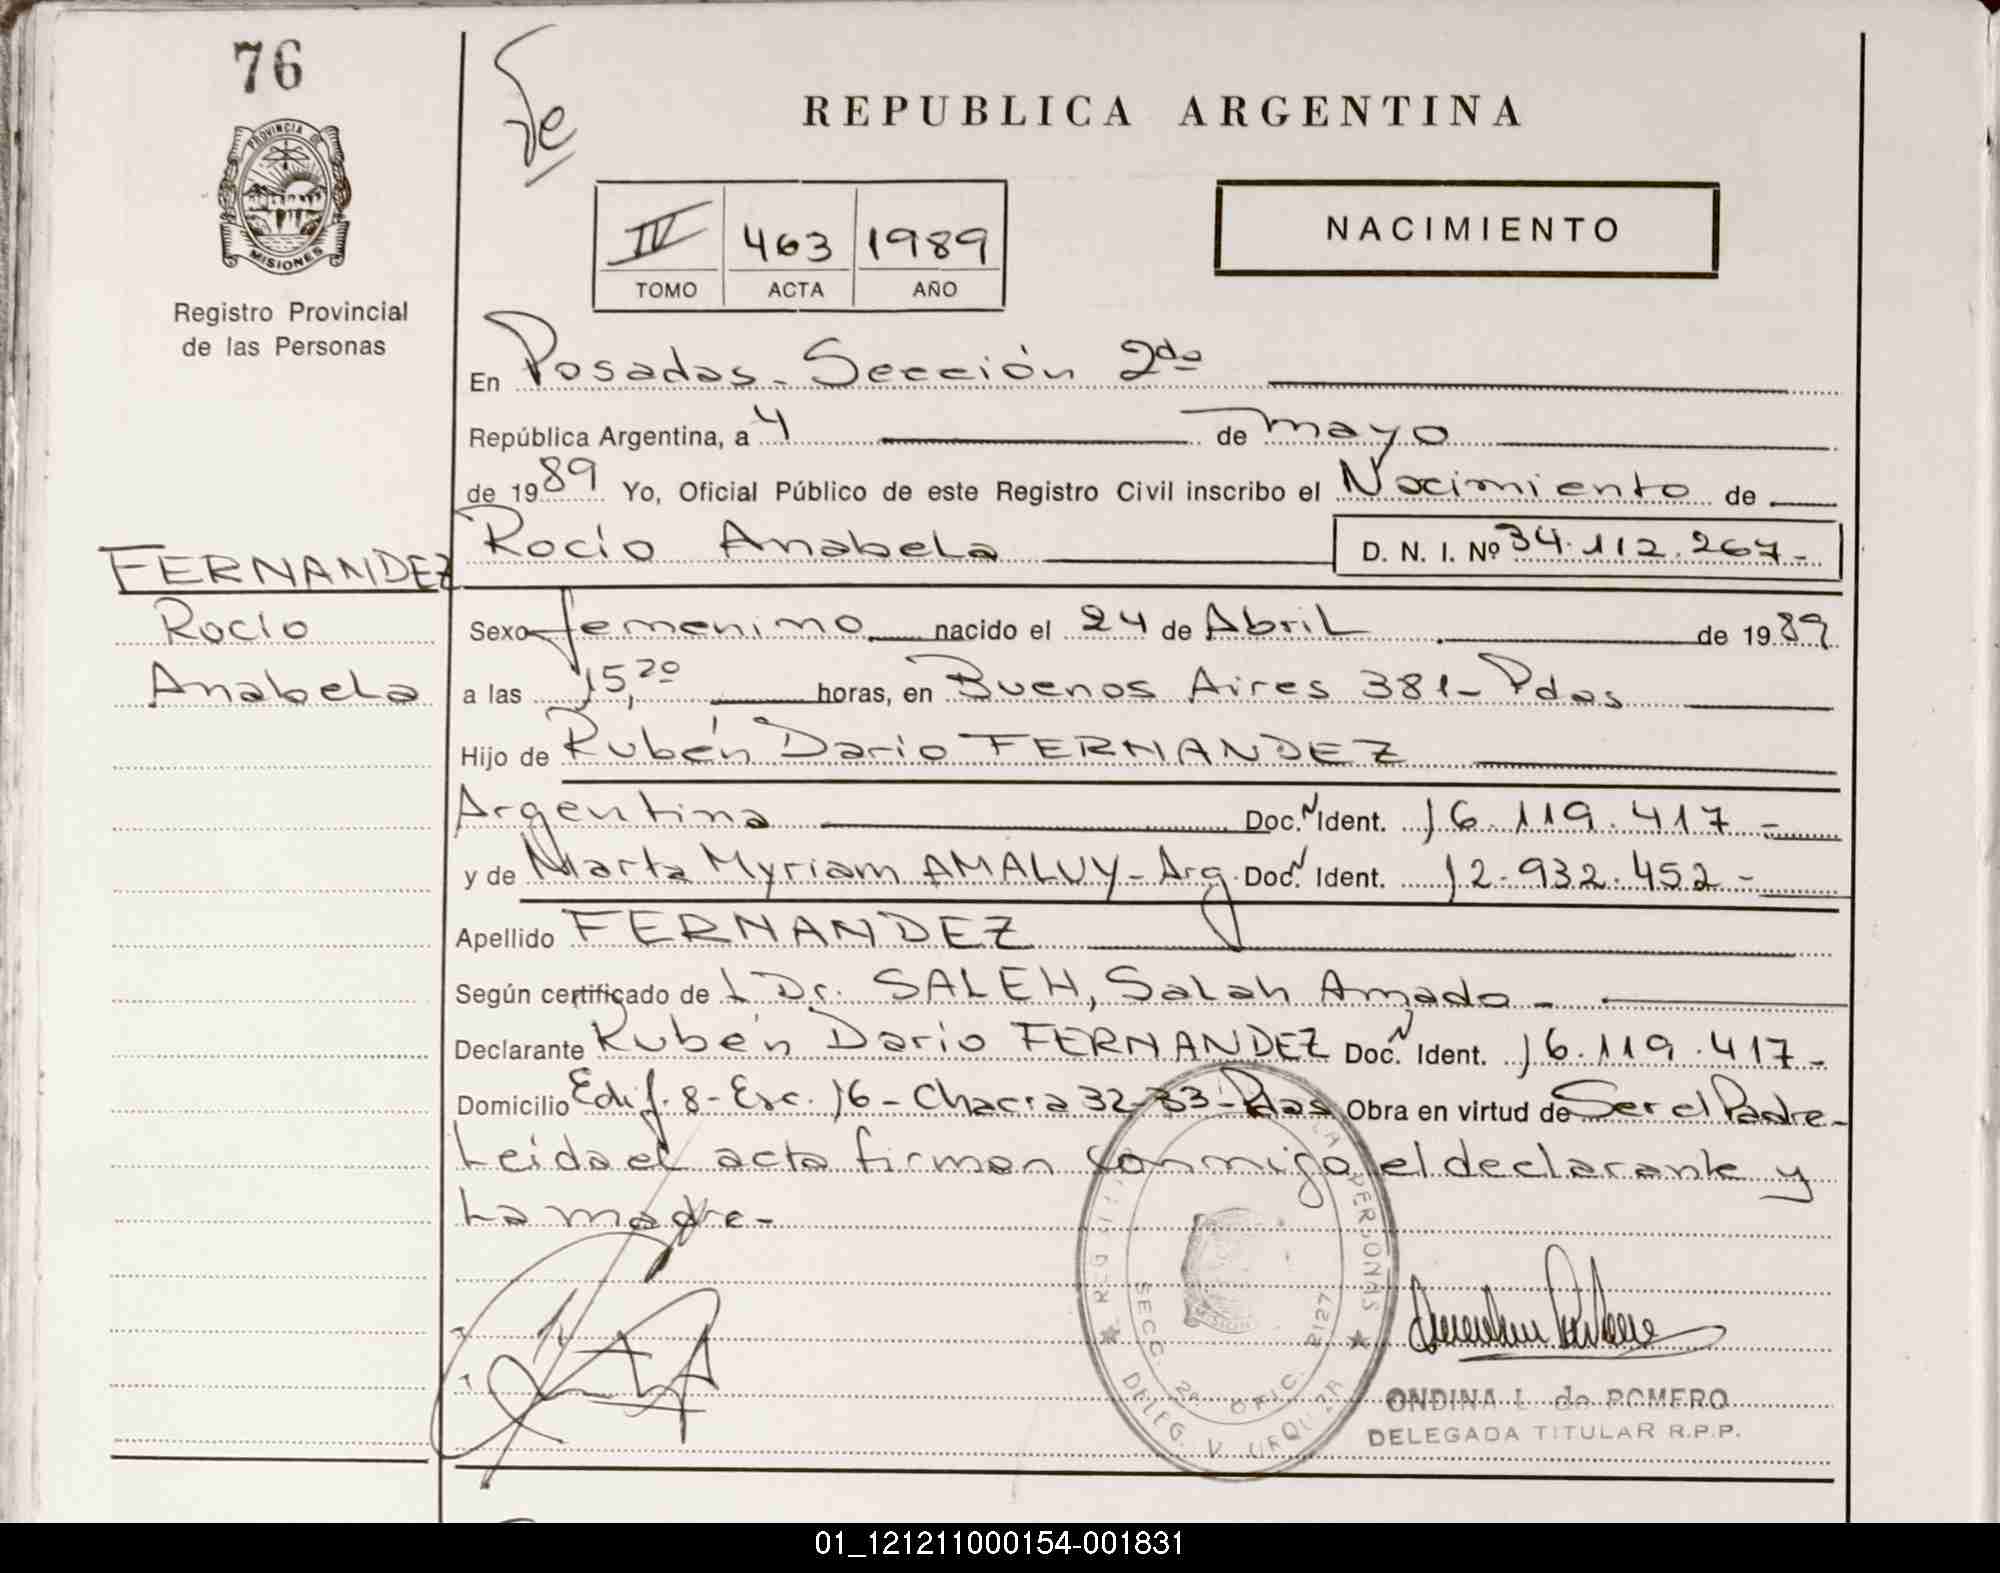 76
PROVINCIA DE
MISIONES
Registro Provincial
de las Personas
FERNANDEZ
Rocío
Anabela
REPUBLICA ARGENTINA
NACIMIENTO
IV 463 1989
TOMO ACTA AÑO
En Posadas - Sección 2da
República Argentina, a 4 de mayo
de 1989 Yo, Oficial Público de este Registro Civil inscribo el Nacimiento de
Rocío Anabela D. N. I. Nº 34.112.267-
Sexo femenino nacido el 24 de Abril de 1989
a las 15,20 horas, en Buenos Aires 381- Pdas
Hijo de Rubén Darío FERNANDEZ
Argentina Doc. N Ident. 16.119.417-
y de Marta Myriam AMALUY - Arg. Doc. N Ident. 12.932.452-
Apellido FERNANDEZ
Según certificado de L Dr. SALEH, Salah Amado -
Declarante Rubén Darío FERNANDEZ Doc. N Ident. 16.119.417-
Domicilio Edif. 8 - Esc. 16 - Chacra 32-33- Pdas Obra en virtud de Ser el Padre-
Leída el acta firman conmigo el declarante y
La madre-
PERSONAS
SECC. 2a OFIC. 2127
DELEG. V. URQUIZA
ONDINA L. de ROMERO
DELEGADA TITULAR R.P.P.
01_121211000154-001831